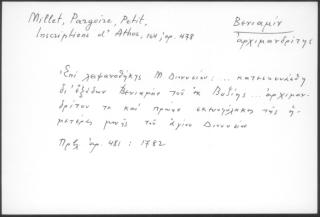 Millet, Pargoire, Petit,
Inscriptions d' Athos, 164, ἀρ. 478
Βενιαμίν
ἀρχιμανδρίτης
Ἐπὶ λειψανοθήκης Μ. Διονυσίου: ... κατεσκευάσθη
δι' ἐξόδων Βενιαμὶν τοῦ ἐκ Βυδίζης ... ἀρχιμαν-
δρίτου τε καὶ πρώην σκευοφύλακος τῆς ἡ-
μετέρας μονῆς τοῦ ἁγίου Διονυσίου
Πρβλ. ἀρ. 481 : 1782